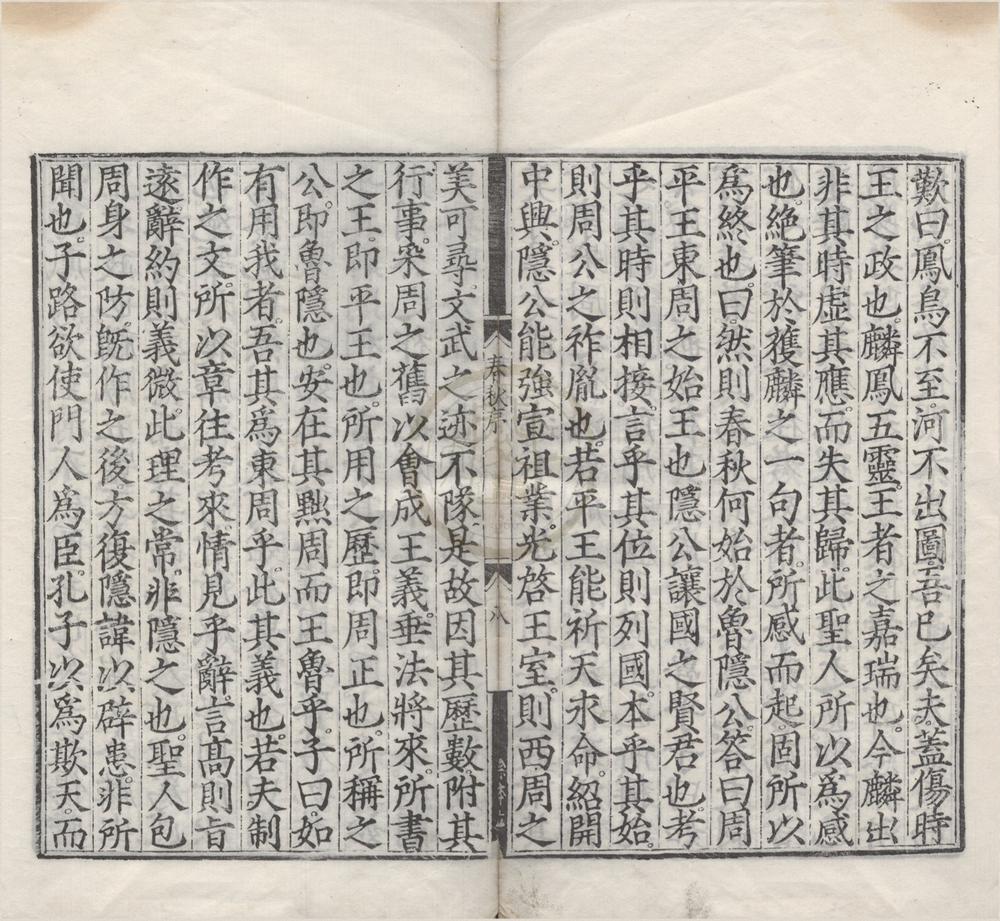 歎曰鳳鳥不至河不出圖吾已矣夫蓋傷時
王之政也麟鳳五靈王者之嘉瑞也今麟出
非其時虛其應而失其歸此聖人所以為感
也絕筆於獲麟之一句者所感而起固所以
為終也曰然則春秋何始於魯隱公答曰周
平王東周之始王也隱公讓國之賢君也考
乎其時則相接言乎其位則列國本乎其始
則周公之祚胤也若平王能祈天永命紹開
中興隱公能強宣祖業光啓王室則西周之
春秋序
八
美可尋文武之迹不隊是故因其歷數附其
行事采周之舊以會成王義垂法將來所書
之王即平王也所用之歷即周正也所稱之
公即魯隱也安在其黜周而王魯乎子曰如
有用我者吾其為東周乎此其義也若夫制
作之文所以章往考來情見乎辭言高則旨
遠辭約則義微此理之常非隱之也聖人包
周身之防旣作之後方復隱諱以辟患非所
聞也子路欲使門人為臣孔子以為欺天而